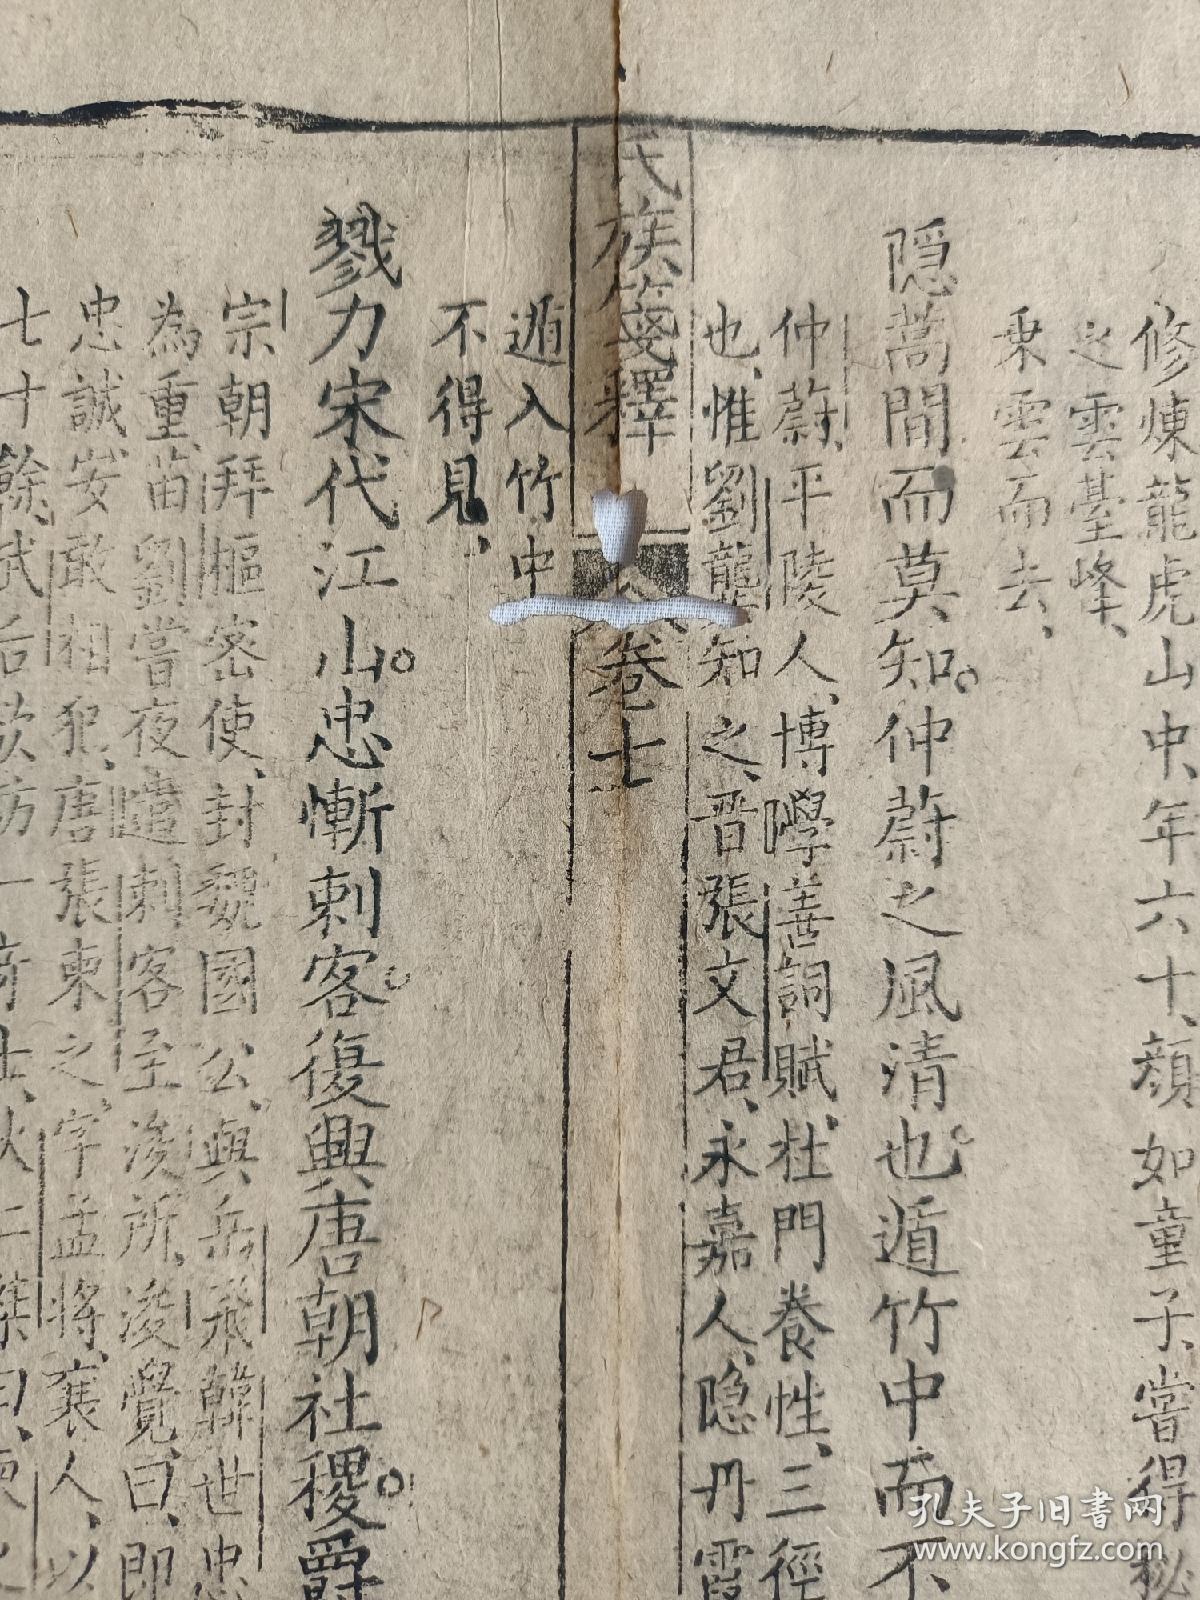 修煉龍虎山中、年六十、顏如童子、嘗得秘
之雲臺峰、
乗雲而去、
隱蒿間而莫知。仲蔚之風清也。遁竹中而不
仲蔚、平陵人、博學善詞賦、杜門養性、三徑
也、惟劉龔知之、晋張文君、永嘉人、隐丹霞
氏族箋釋
卷七
遁入竹中
不得見、
戮力宋代江山。忠慚刺客。復興唐朝社稷。爵
宗朝拜樞密使、封魏國公、與岳飛韓世忠
為重、苗劉嘗夜遣刺客至浚所、浚覺曰、即
忠誠、安敢相犯、唐張柬之、字孟將、襄人、以
七十餘、武后欲訪一奇士、狄仁傑曰、
孔夫子旧书网
www.kongfz.com